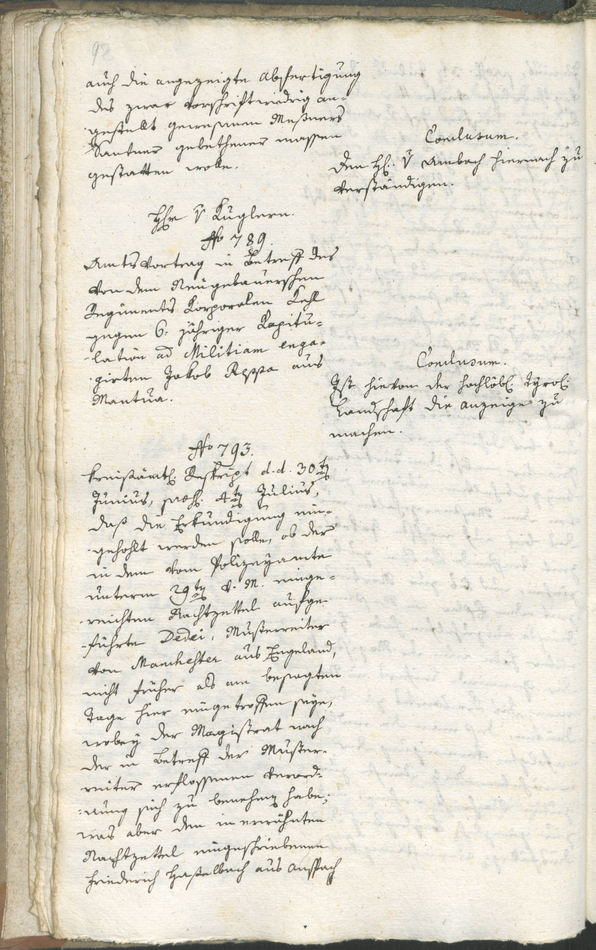 92
auch die angezeigte Abfertigung
des zwar vorschriftwidrig an-
gestellt gewesenen Meßners
Santner gebettener massen
gestatten wolle.
Conclusum.
dem H: v Ambach hiernach zu
verständigen.
Hr v Kuglern.
No 789.
Amtsvortrag in Betreff des
von dem Neugebauerschen
Regiments Korporalen
gegen 6. jähriger Kapitu-
lation ad Militiam enga-
girten Jakob aus
Mantua.
Conclusum.
Ist hievon der hochlöbl: Tyrol:
Landschaft die Anzeige zu
machen.
No 793.
Kreisämtl: Reskript d.d. 30ten
Junius, praes: 4ten Julius,
daß die Erkundigung ein-
geholt werden solle, ob der
in dem vom Polizeyamte
unterm 29ten v. M. einge-
reichten Nachtzettel aufge-
führte Dedei, Musterreiter
von Manchester aus Engeland,
nicht früher als am besagten
Tage hier eingetroffen seye,
wobey der Magistrat nach
der in Betreff der Muster-
reiter erflossenen Verord-
nung sich zu benehmen habe;
was aber den in erwähnten
Nachtzettel eingeschriebenen
Friederich Haselbach aus Anspach